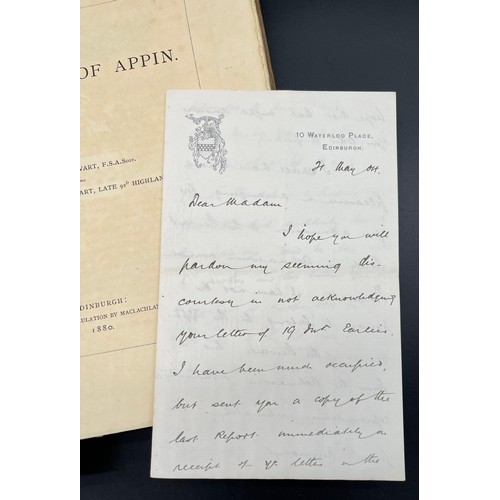 OF APPIN.
WART, F.S.A. Scot.
ART, LATE 92ᵈ HIGHLAN
EDINBURGH:
CULATION BY MACLACHLAN
1880.
10 WATERLOO PLACE,
EDINBURGH.
May 04.
Dear Madam
I hope you will
pardon my seeming dis-
courtesy in not acknowledging
your letter of 19 Inst Earlier.
I have been much occupied,
but sent you a copy of the
last Report immediately on
receipt of yr. letter in the